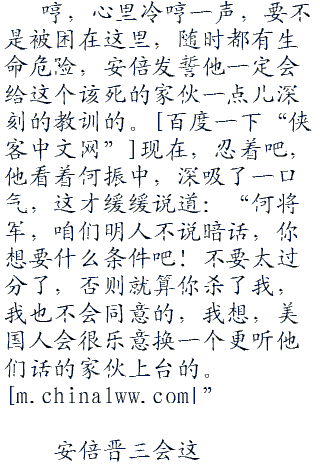 哼，心里冷哼一声，要不
是被困在这里，随时都有生
命危险，安倍发誓他一定会
给这个该死的家伙一点儿深
刻的教训的。[百度一下“侠
客中文网”]现在，忍着吧，
他看着何振中，深吸了一口
气，这才缓缓说道：“何将
军，咱们明人不说暗话，你
想要什么条件吧！不要太过
分了，否则就算你杀了我，
我也不会同意的，我想，美
国人会很乐意换一个更听他
们话的家伙上台的。
[m.chinalww.com|”
安倍晋三会这